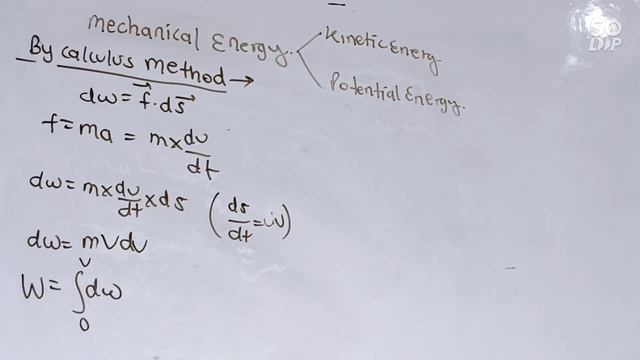 mechanical Energy
Kinetic Energy
Potential Energy.
By calculus method →
dw = f⃗ · ds⃗
f = ma = m × dv/dt
dw = m × dv/dt × ds (ds/dt = v)
dw = mvdv
W = ∫₀ᵛ dw